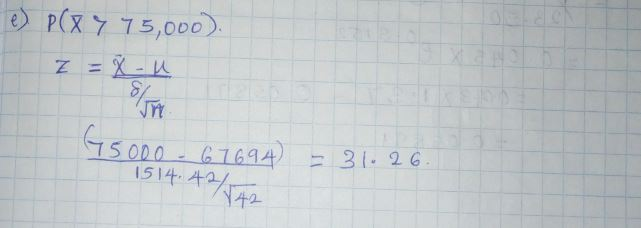 e) P(X̄ > 75,000).
z = X̄ - μ / δ/√n.
(75000 - 67694) / 1514.42/√42 = 31.26.